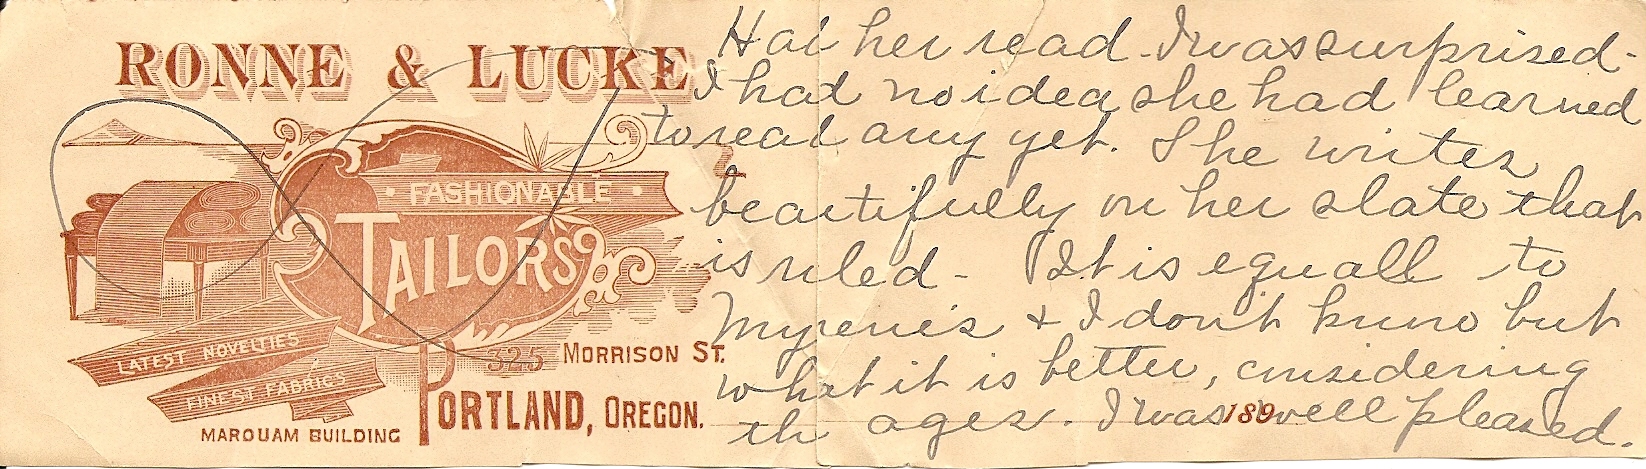 RONNE & LUCKE
FASHIONABLE
TAILORS
LATEST NOVELTIES
FINEST FABRICS
325 MORRISON ST.
PORTLAND, OREGON.
MARQUAM BUILDING
189
Had her read. I was surprised.
I had no idea she had learned
to read any yet. She writes
beautifully on her slate that
is ruled - It is equall to
Myrene's & I don't know but
what it is better, considering
th ages. I was well pleased.